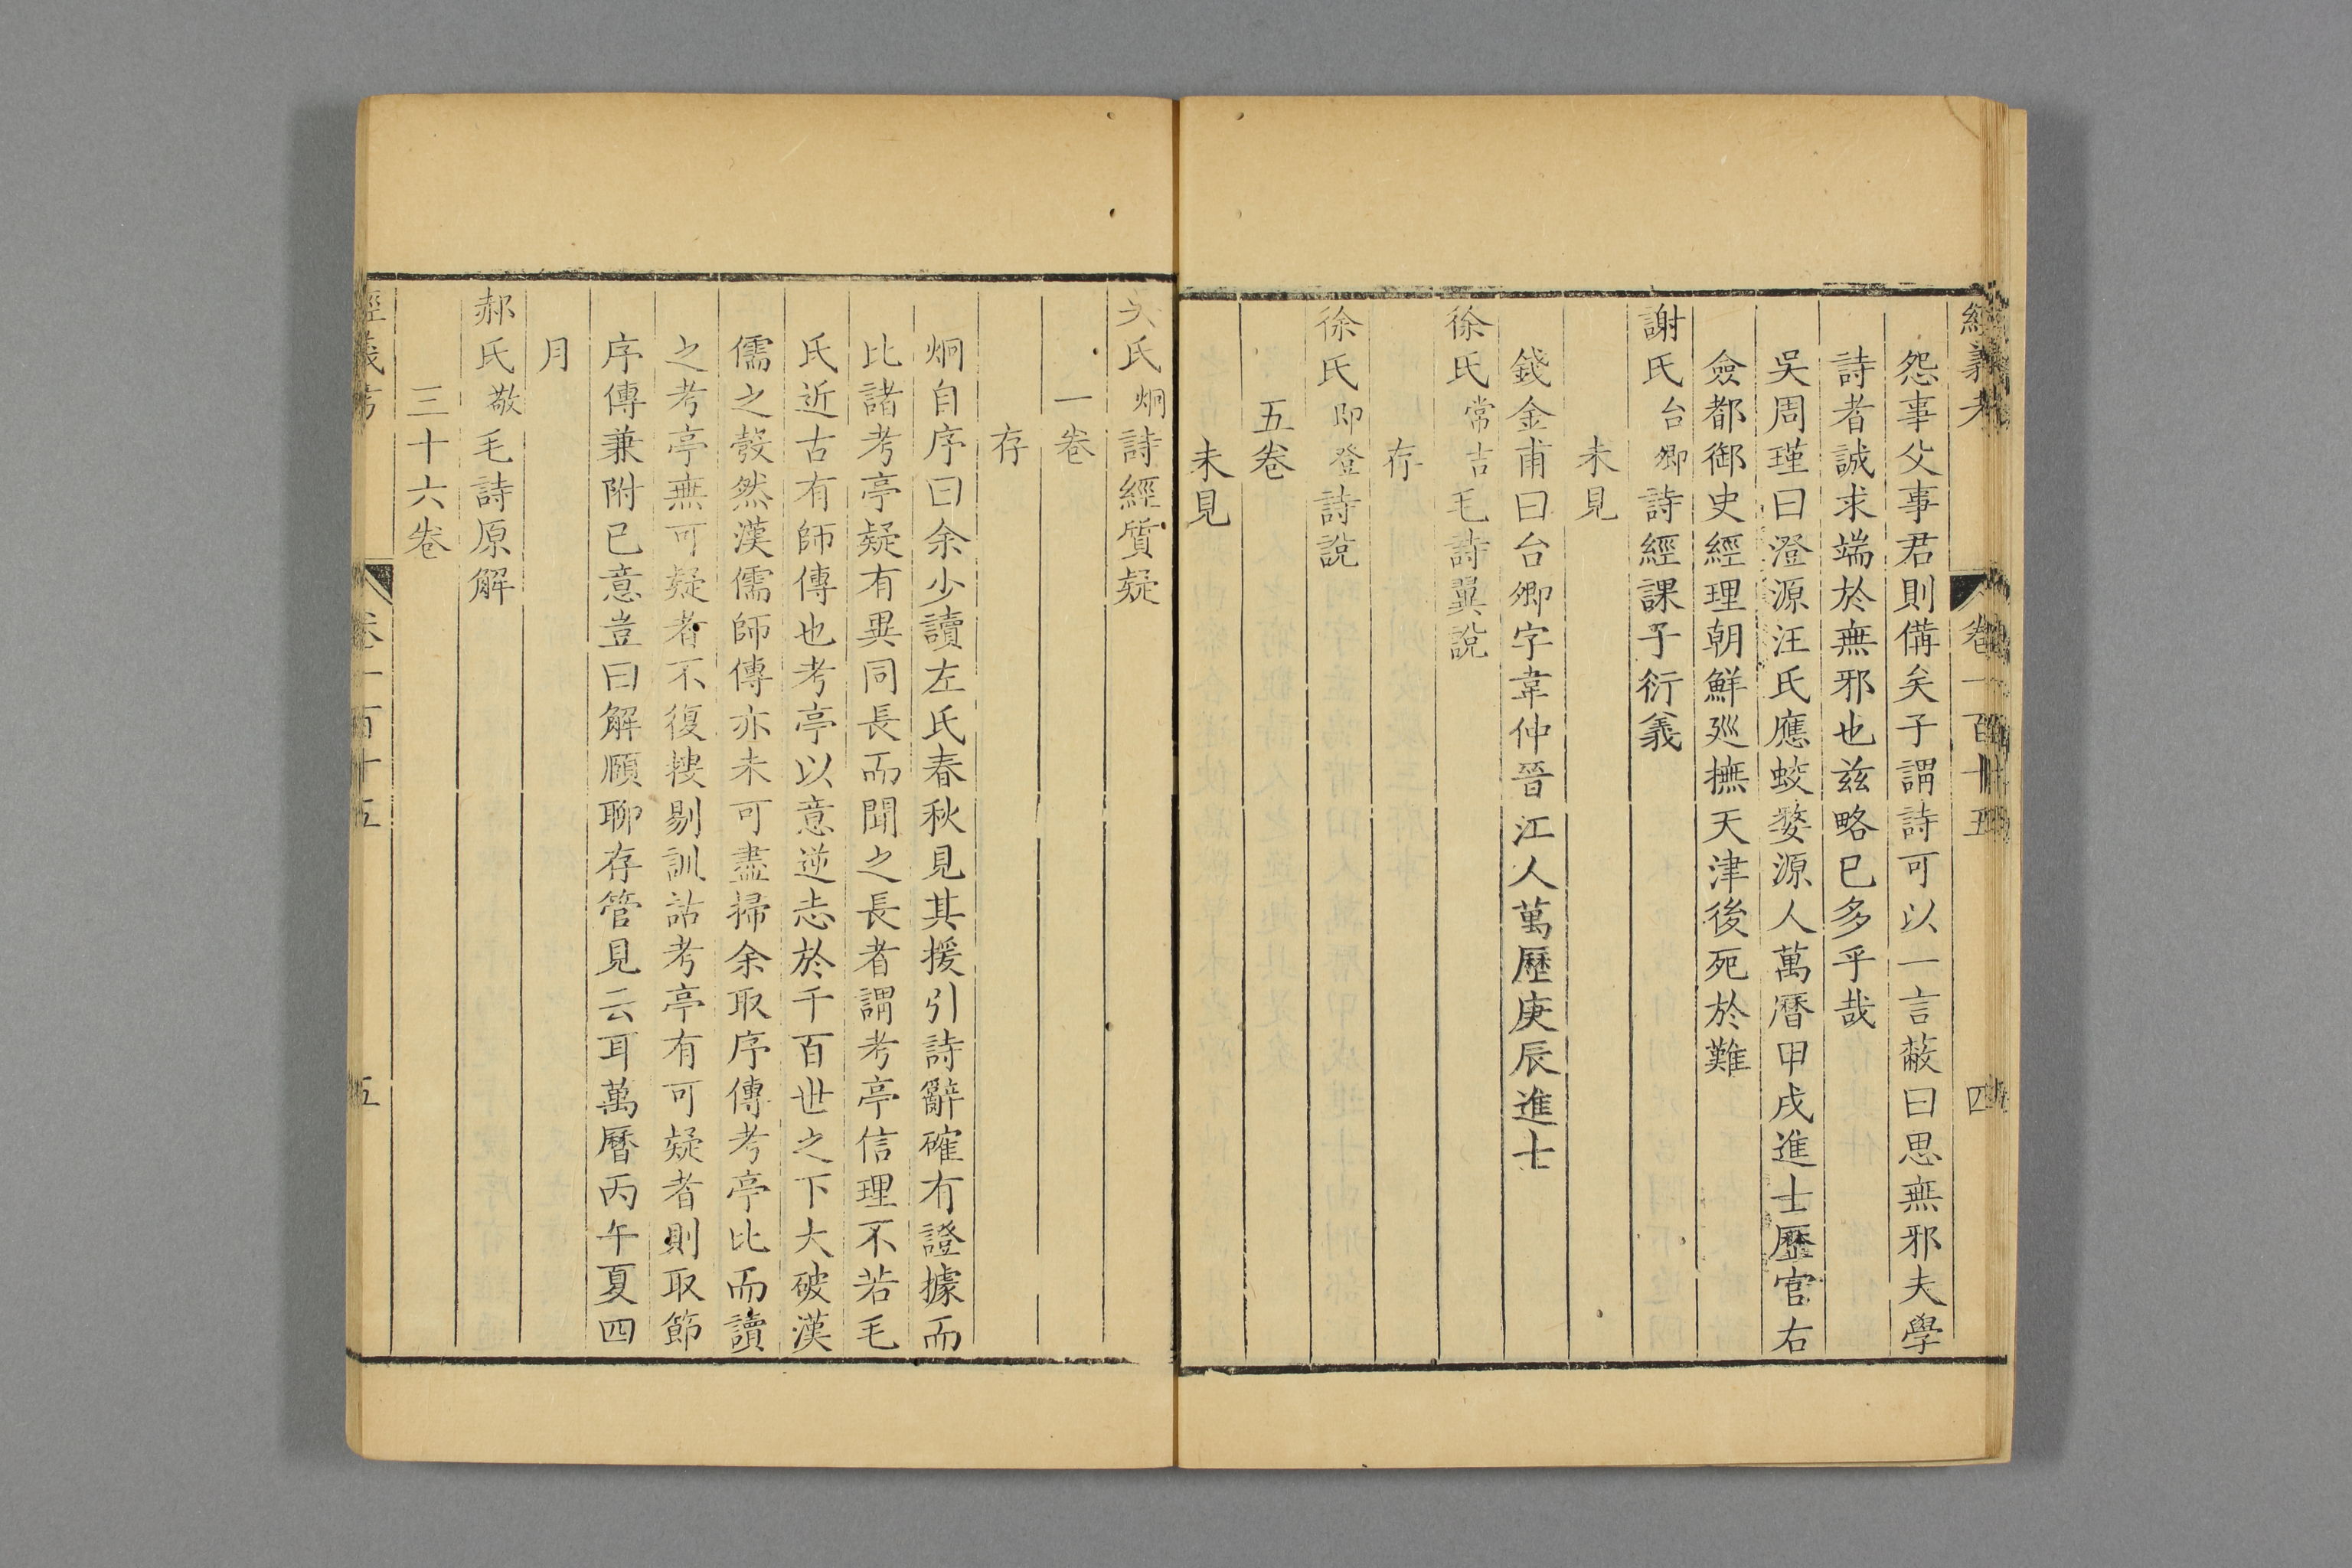 經義考 卷一百十五 四
怨事父事君則備矣子謂詩可以一言蔽曰思無邪夫學
詩者誠求端於無邪也兹略已多乎哉
吳周瑾曰澄源汪氏應蛟婺源人萬曆甲戌進士歷官右
僉都御史經理朝鮮廵撫天津後死於難
謝氏台卿詩經課子衍義
未見
錢金甫曰台卿字韋仲晉江人萬歷庚辰進士
徐氏常吉毛詩翼說
存
徐氏即登詩說
五卷
未見
氏炯詩經質疑
一卷
存
炯自序曰余少讀左氏春秋見其援引詩辭確有證據而
比諸考亭疑有異同長而聞之長者謂考亭信理不若毛
氏近古有師傳也考亭以意逆志於千百世之下大破漢
儒之發然漢儒師傳亦未可盡掃余取序傳考亭比而讀
之考亭無可疑者不復摟剔訓詁考亭有可疑者則取節
序傳兼附已意豈曰解頤聊存管見云耳萬曆丙午夏四
月
郝氏敬毛詩原解
三十六卷
經義考 卷一百十五 五